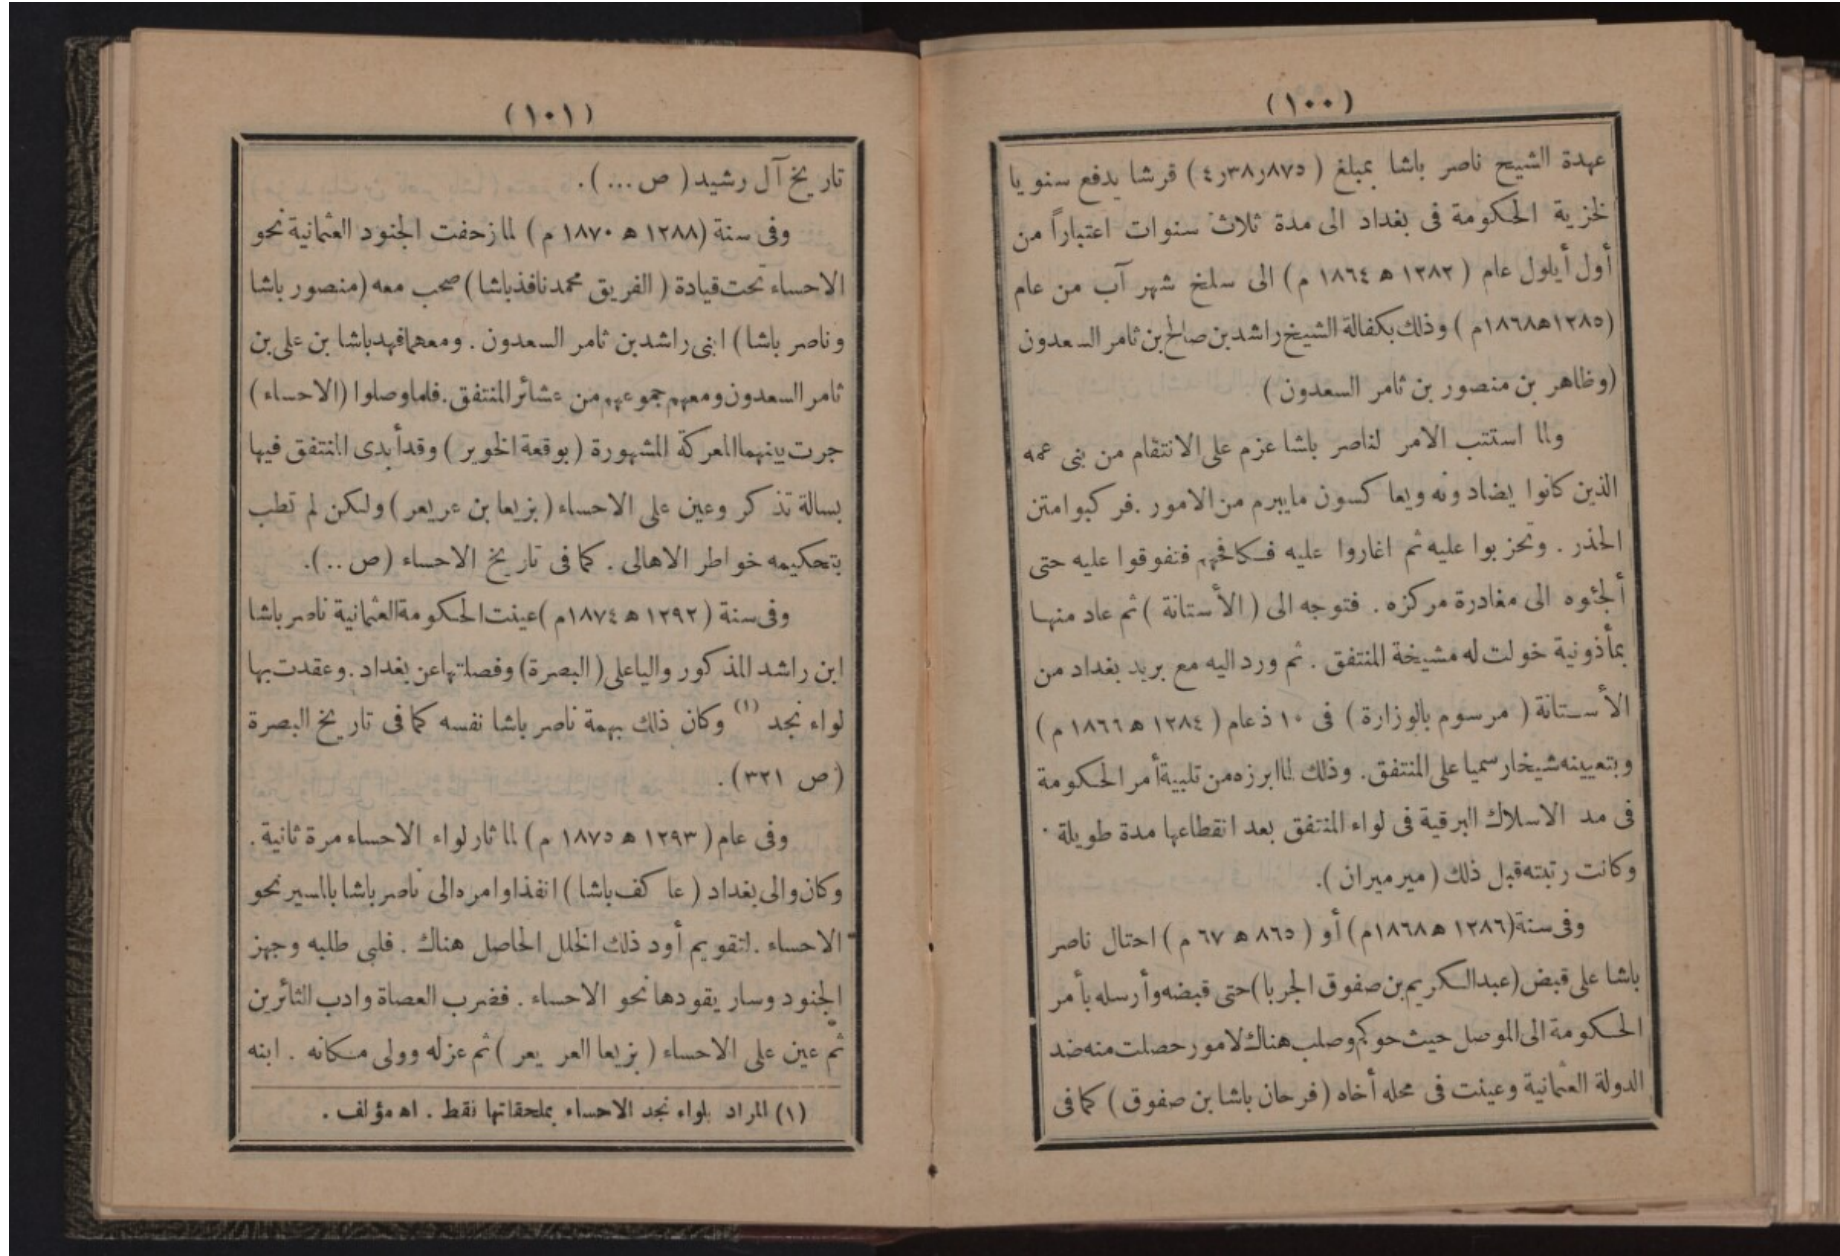 (١٠٠)
عهدة الشيخ ناصر باشا بمبلغ (٨٧٥ر٣٨ر٤) قرشا يدفع سنويا
لخزية الحكومة فى بغداد الى مدة ثلاث سنوات اعتباراً من
أول أيلول عام (١٢٨٢ ه ١٨٦٤ م) الى سلخ شهر آب من عام
(١٢٨٥ه١٨٦٨م) وذلك بكفالة الشيخ راشد بن صالح بن ثامر السعدون
(وظاهر بن منصور بن ثامر السعدون)
ولما استتب الامر لناصر باشا عزم على الانتقام من بنى عمه
الذين كانوا يضادونه ويعاكسون مايبرم من الامور . فركبوا متن
الحذر . وتحزبوا عليه ثم اغاروا عليه فكافحهم فتفوقوا عليه حتى
ألجئوه الى مغادرة مركزه . فتوجه الى (الأستانة) ثم عاد منها
بمأذونية خولت له مشيخة المنتفق . ثم ورد اليه مع بريد بغداد من
الأستانة (مرسوم بالوزارة) فى ١٠ ذ عام (١٢٨٤ ه ١٨٦٦ م)
وبتعيينه شيخا رسميا على المنتفق . وذلك لما ابرزه من تلبية أمر الحكومة
فى مد الاسلاك البرقية فى لواء المنتفق بعد انقطاعها مدة طويلة .
وكانت رتبته قبل ذلك (ميرميران).
وفى سنة (١٢٨٦ ه ١٨٦٨م) أو (٨٦٥ ه ٦٧ م) احتال ناصر
باشا على قبض (عبد الكريم بن صفوق الجربا) حتى قبضه وأرسله بأمر
الحكومة الى الموصل حيث حوكم وصلب هناك لامور حصلت منه ضد
الدولة العثمانية وعينت فى محله أخاه (فرحان باشا بن صفوق) كما فى
(١٠١)
تاريخ آل رشيد (ص ...).
وفى سنة (١٢٨٨ ه ١٨٧٠ م) لما زحفت الجنود العثمانية نحو
الاحساء تحت قيادة (الفريق محمد نافذ باشا) صحب معه (منصور باشا
وناصر باشا) ابنى راشد بن ثامر السعدون . ومعهما فهد باشا بن على بن
ثامر السعدون ومعهم جموعهم من عشائر المنتفق . فلما وصلوا (الاحساء)
جرت بينهما المعركة المشهورة (بوقعة الخوير) وقد أبدى المنتفق فيها
بسالة تذكر وعين على الاحساء (بزيعا بن عريعر) ولكن لم تطب
بتحكيمه خواطر الاهالى . كما فى تاريخ الاحساء (ص ..).
وفى سنة (١٢٩٢ ه ١٨٧٤م) عينت الحكومة العثمانية ناصر باشا
ابن راشد المذكور واليا على (البصرة) وفصلتها عن بغداد . وعقدت بها
لواء نجد (١) وكان ذلك بهمة ناصر باشا نفسه كما فى تاريخ البصرة
(ص ٣٢١).
وفى عام (١٢٩٣ ه ١٨٧٥ م) لما ثار لواء الاحساء مرة ثانية .
وكان والى بغداد (عاكف باشا) انفذ اوامره الى ناصر باشا بالمسير نحو
الاحساء . لتقويم أود ذلك الخلل الحاصل هناك . فلبى طلبه وجهز
الجنود وسار يقودها نحو الاحساء . فضرب العصاة وادب الثائرين
ثمّ عين على الاحساء (بزيعا العريعر) ثم عزله وولى مكانه . ابنه
(١) المراد بلواء نجد الاحساء بملحقاتها نقط . اه مؤلف .